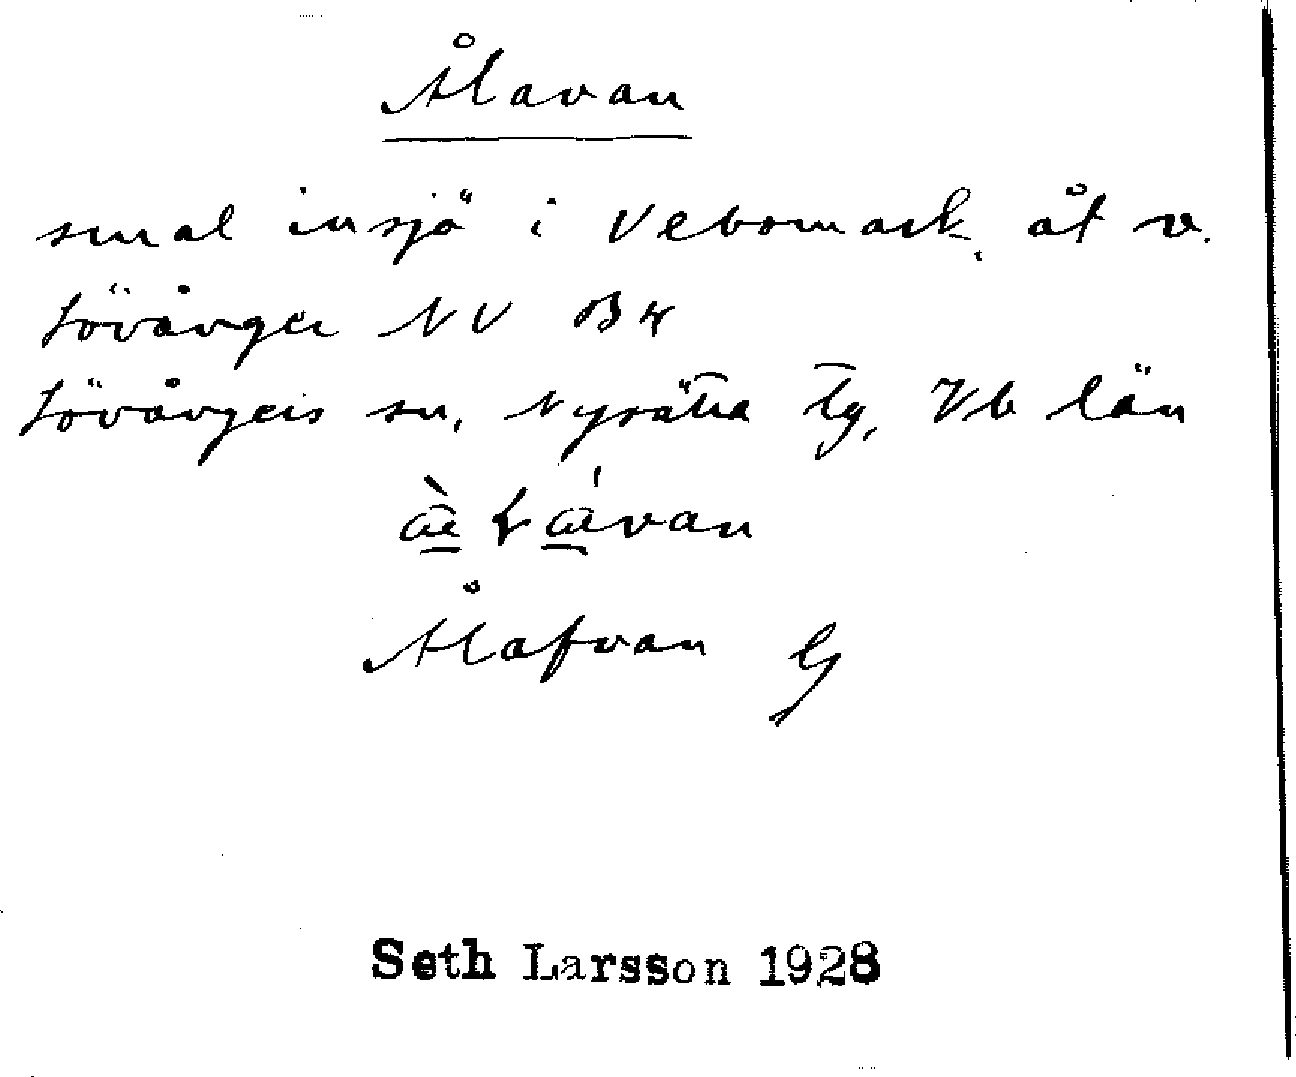 Ålavan
smal insjö i Vebomark, åt v.
Lövånger NV B4
Lövångers sn, Nysätra Tg, Vb län
Ålafvan G
Seth Larsson 1928